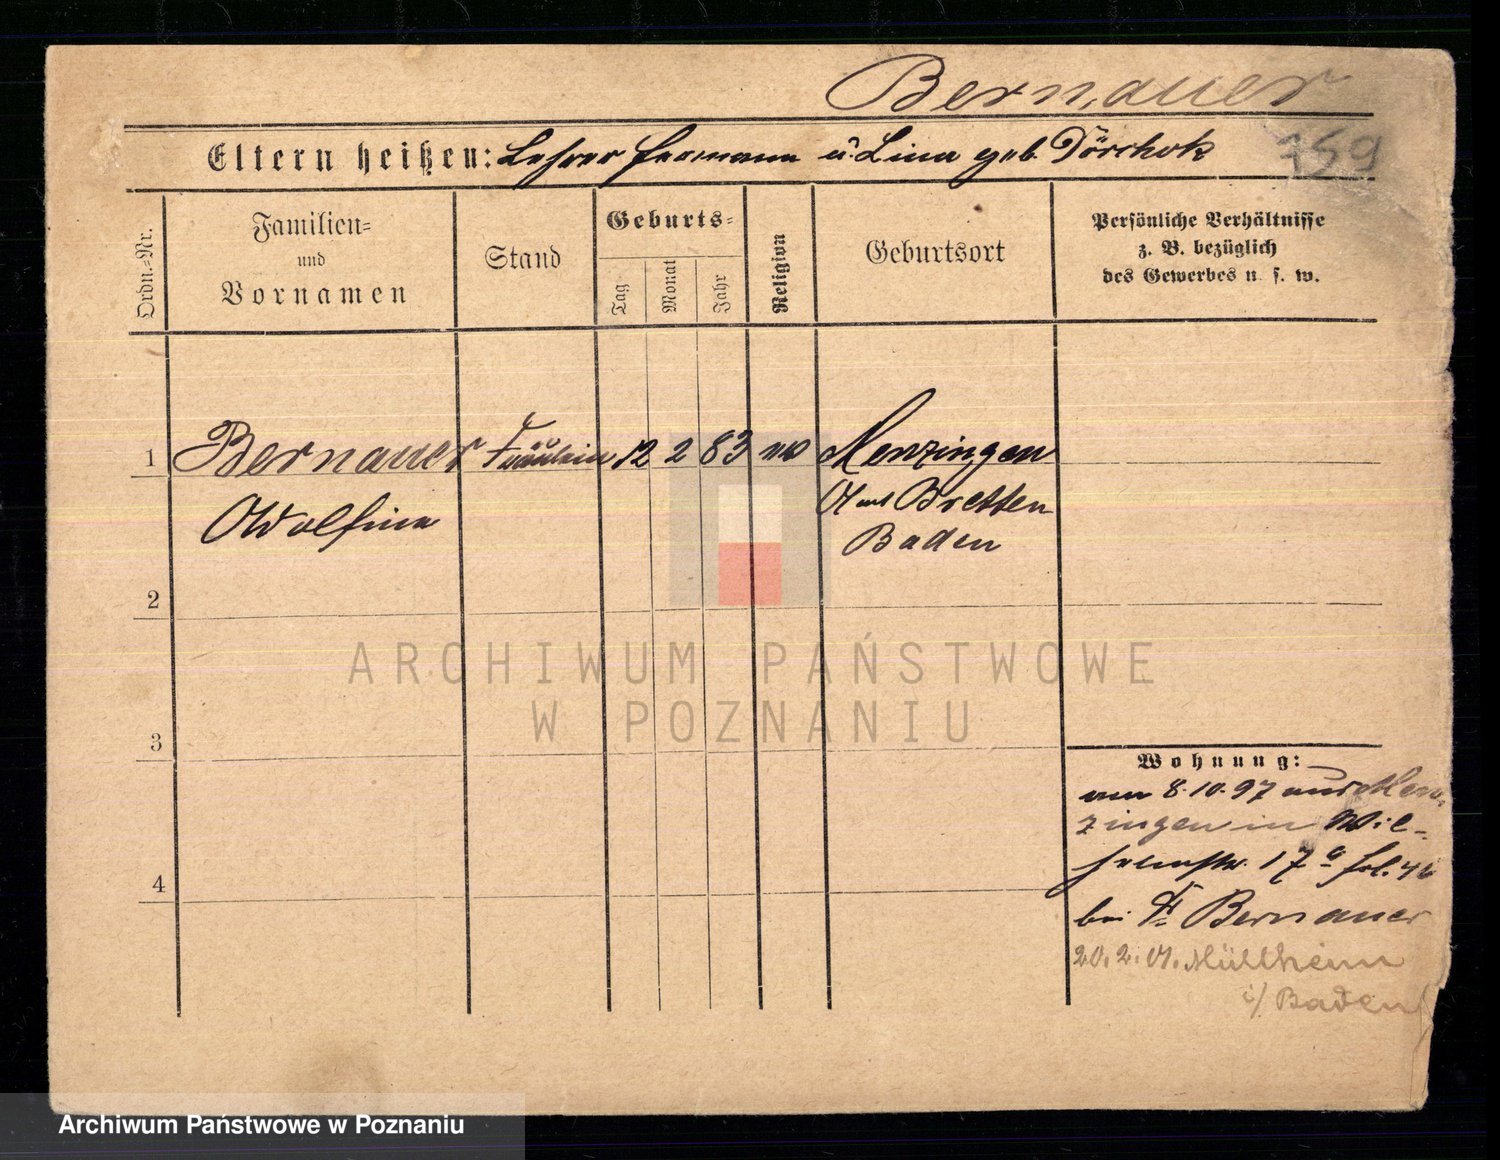 Bernauer
759
Eltern heißen: Lehrer Hermann u. Lina geb. Dörrhok
Ordn.-Nr.
Familien-
und
Vornamen
Stand
Geburts-
Tag
Monat
Jahr
Religion
Geburtsort
Persönliche Verhältnisse
z. B. bezüglich
des Gewerbes u. s. w.
1 Bernauer Fräulein 12 2 83 Menzingen
Adolfine
Amt Bretten
Baden
2
3
4
Wohnung:
am 8.10.97 aus Men-
zingen in Wil-
helmstr. 17a
bei Fr. Bernauer
20.2.01. Müllheim
i/ Baden
ARCHIWUM PAŃSTWOWE
W POZNANIU
Archiwum Państwowe w Poznaniu